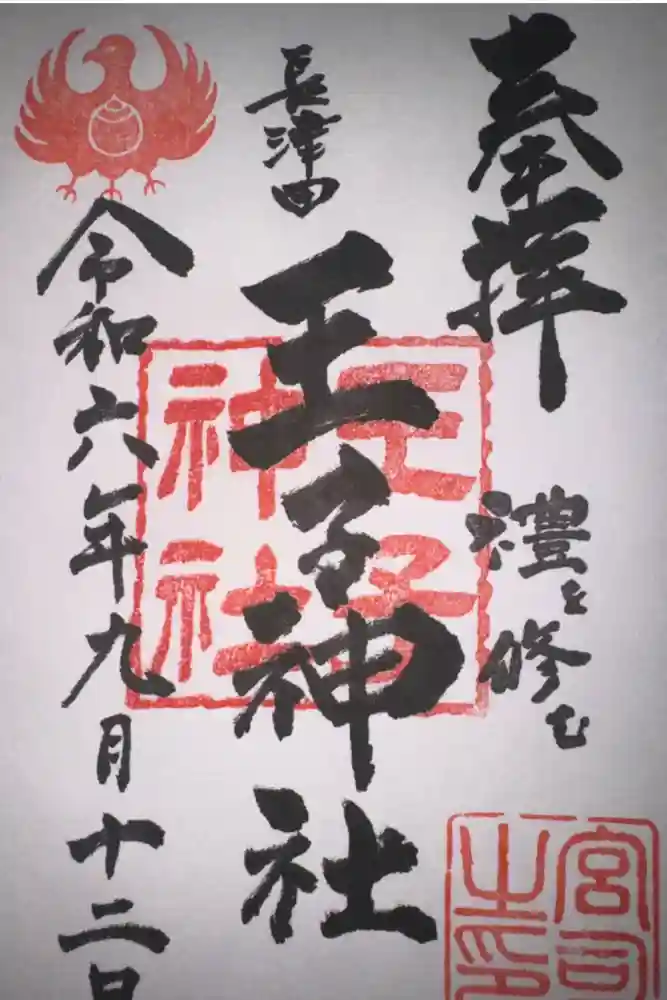 奉拝
禮を修む
長津田
王子神社
令和六年九月十二日
王子
神社
宮司
之印